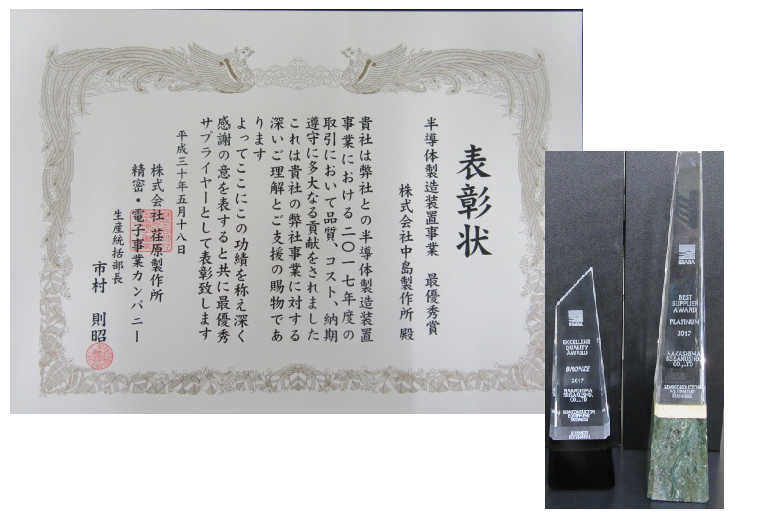 表彰状
半導体製造装置事業　最優秀賞
株式会社中島製作所 殿
貴社は弊社との半導体製造装置
事業における二〇一七年度の
取引において品質、コスト、納期
遵守に多大なる貢献をされました
これは貴社の弊社事業に対する
深いご理解とご支援の賜物であ
ります
よってここにこの功績を称え深く
感謝の意を表すると共に最優秀
サプライヤーとして表彰致します
平成三十年五月十八日
株式会社 荏原製作所
精密・電子事業カンパニー
生産統括部長
市村　則昭
EBARA
EXCELLENT
QUALITY
AWARD
BRONZE
2017
NAKASHIMA
SEISAKUSHO.
CO.,LTD
SEMICONDUCTOR
EQUIPMENT
BUSINESS
EBARA
BEST
SUPPLIER
AWARD
PLATINUM
2017
NAKASHIMA
SEISAKUSHO.
CO.,LTD
SEMICONDUCTOR
EQUIPMENT
BUSINESS